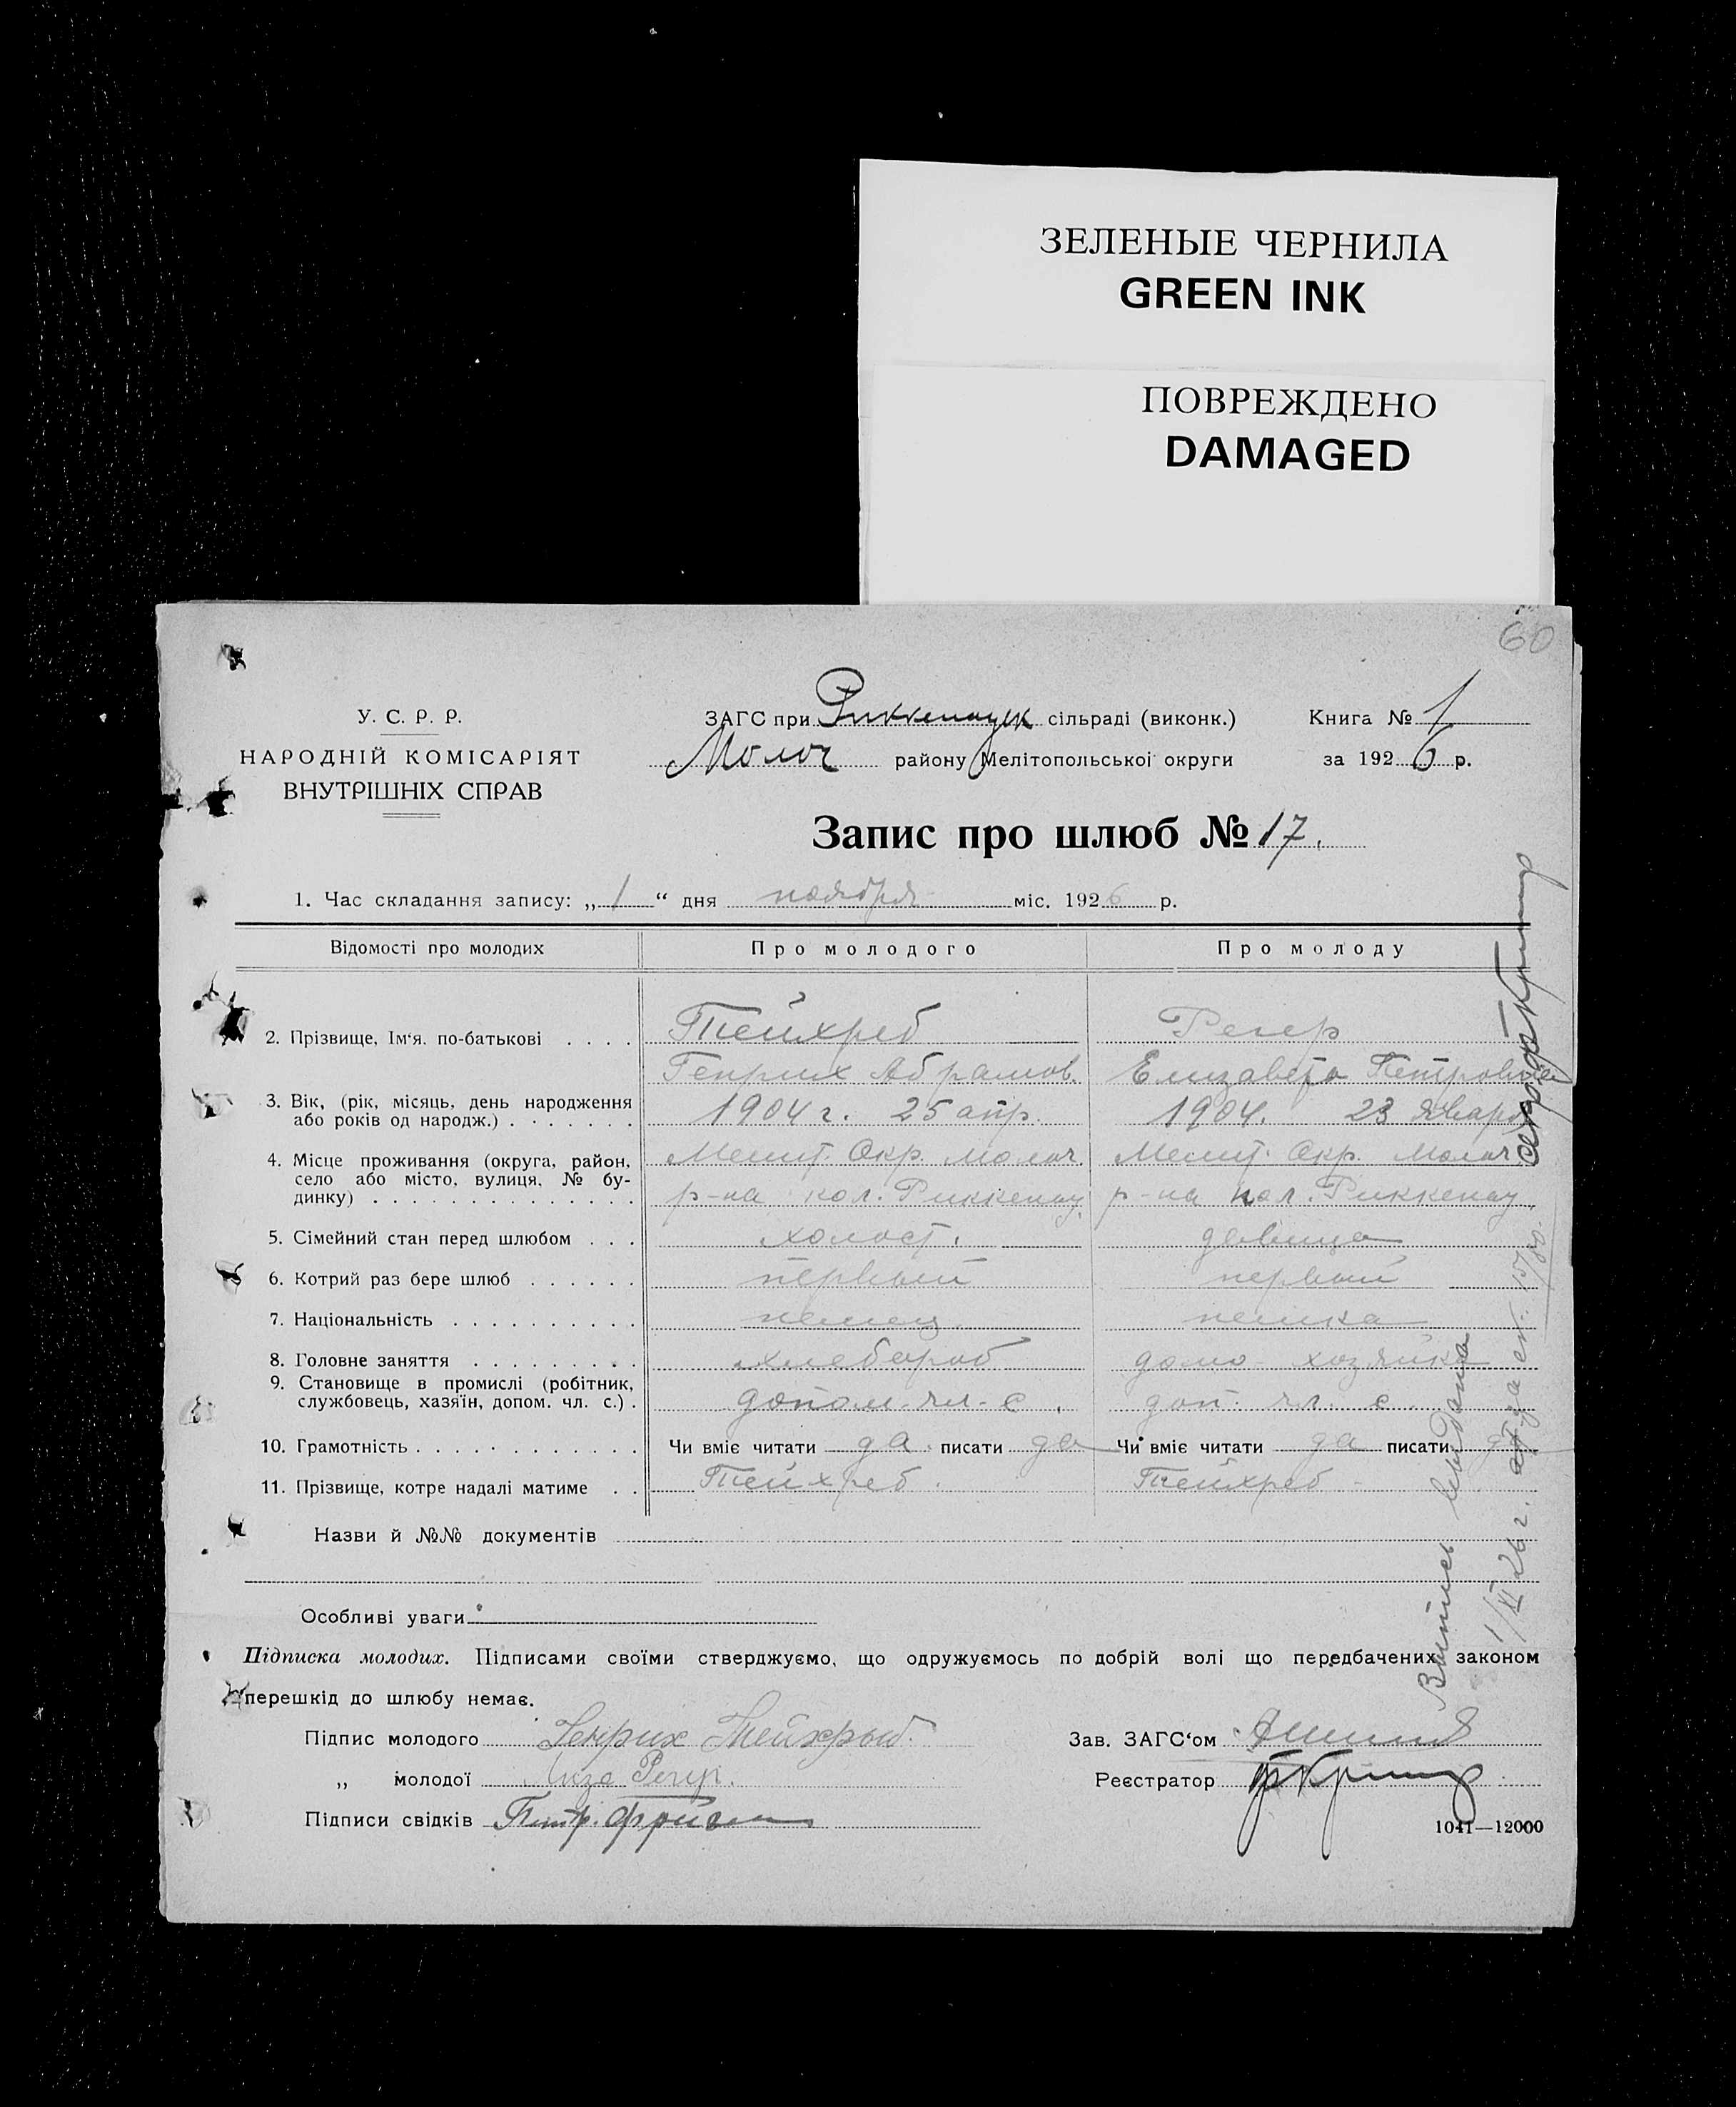 ЗЕЛЕНЫЕ ЧЕРНИЛА
GREEN INK
ПОВРЕЖДЕНО
DAMAGED
60
У. С. Р. Р.
НАРОДНІЙ КОМІСАРІЯТ
ВНУТРІШНІХ СПРАВ
ЗАГС при Риккенауск сільраді (виконк.)
Молоч району Мелітопольської округи
Книга № 1
за 1926 р.
Запис про шлюб № 17.
1. Час складання запису: „ 1 “ дня ноября міс. 1926 р.
Відомості про молодих Про молодого Про молоду
2. Прізвище, Ім‘я. по-батькові . . . . Тейхреб Регер
Генрих Абрамов. Елизавета Петровна
3. Вік, (рік, місяць, день народження
або років од народж.) . . . . . . . 1904 г. 25 апр. 1904. 23 января
4. Місце проживання (округа, район, Мелит. Окр. Молоч. Мелит. Окр. Молоч.
село або місто, вулиця, № бу-
динку) . . . . . . . . . . . . . . р-на кол. Риккенау р-на кол. Риккенау
5. Сімейний стан перед шлюбом . . . холост. девица
6. Котрий раз бере шлюб . . . . . . первый первый
7. Національність . . . . . . . . . . немец немка
8. Головне заняття . . . . . . . . . хлебороб домо-хозяйка
9. Становище в промислі (робітник,
службовець, хазяїн, допом. чл. с.) . допом чл. с. доп. чл. с.
10. Грамотність . . . . . . . . . . . . Чи вміє читати да писати да Чи вміє читати да писати да
11. Прізвище, котре надалі матиме . . Тейхреб. Тейхреб
Назви й №№ документів
Особливі уваги
Підписка молодих. Підписами своїми стверджуємо, що одружуємось по добрій волі що передбачених законом
перешкід до шлюбу немає.
Підпис молодого Генрих Тейхрыб.
„ молодої Лиза Регер.
Підписи свідків Петр. Фризен
Зав. ЗАГС‘ом
Реєстратор
1041—12000
Выпись выдана
1/XI 26 г.